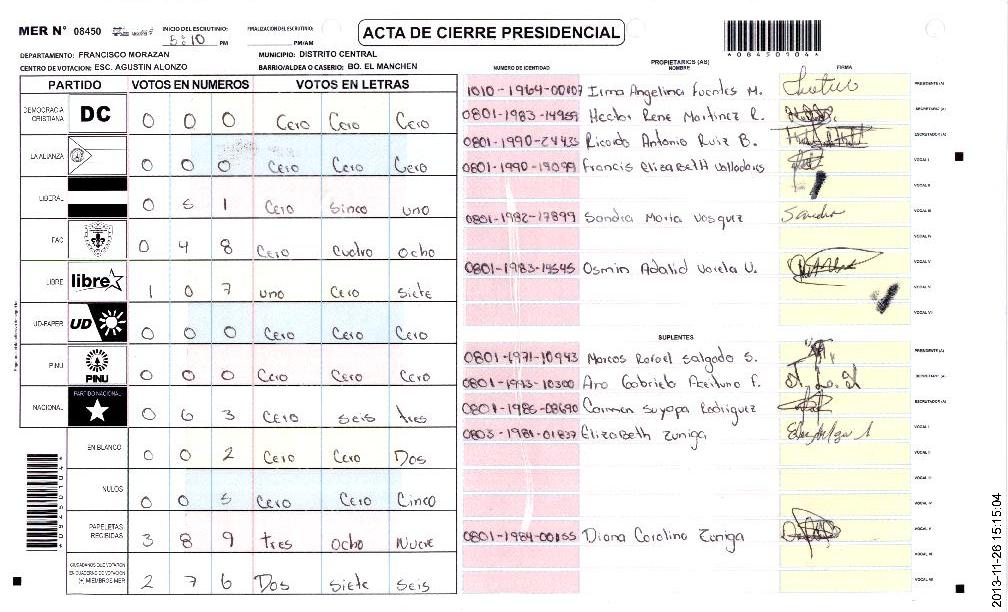 MER N° 08450 INICIO DEL ESCRUTINIO: 5:10 PM FINALIZACION DEL ESCRUTINIO: PM/AM
ACTA DE CIERRE PRESIDENCIAL
*08450104*
DEPARTAMENTO: FRANCISCO MORAZAN MUNICIPIO: DISTRITO CENTRAL
CENTRO DE VOTACION: ESC. AGUSTIN ALONZO BARRIO/ALDEA O CASERIO: BO. EL MANCHEN
PARTIDO VOTOS EN NUMEROS VOTOS EN LETRAS
DEMOCRACIA CRISTIANA DC 0 0 0 Cero Cero Cero
LA ALIANZA 0 0 0 Cero Cero Cero
LIBERAL 0 5 1 Cero Sinco uno
FAC 0 4 8 Cero Cuatro Ocho
LIBRE libre 1 0 7 uno Cero Siete
UD-FAPER UD 0 0 0 Cero Cero Cero
PINU PINU 0 0 0 Cero Cero Cero
NACIONAL PARTIDO NACIONAL 0 6 3 Cero seis tres
EN BLANCO 0 0 2 Cero Cero Dos
NULOS 0 0 5 Cero Cero Cinco
PAPELETAS RECIBIDAS 3 8 9 tres Ocho Nueve
CIUDADANOS QUE VOTARON EN CUADERNO DE VOTACION (+) MIEMBROS MER 2 7 6 Dos siete seis
*08450104*
PROPIETARIOS (AS)
NUMERO DE IDENTIDAD NOMBRE FIRMA
1010-1964-00107 Irma Angelina Fuentes M. PRESIDENTE (A)
0801-1983-14959 Hector Rene Martinez R. SECRETARIO (A)
0801-1990-24423 Ricardo Antonio Ruiz B. ESCRUTADOR (A)
0801-1990-19099 Francis Elizabeth Valladares VOCAL I
VOCAL II
0801-1982-17899 Sandra Maria Vasquez Sandra VOCAL III
VOCAL IV
0801-1983-14545 Osmin Adalid Varela U. VOCAL V
VOCAL VI
SUPLENTES
0801-1971-10943 Marcos Rafael Salgado S. PRESIDENTE (A)
0801-1993-10300 Ana Gabriela Aceituno F. SECRETARIO (A)
0801-1986-08690 Carmen Suyapa Rodriguez ESCRUTADOR (A)
0803-1981-01837 Elizabeth Zuniga VOCAL I
VOCAL II
VOCAL III
VOCAL IV
0801-1984-00155 Diana Carolina Zuniga VOCAL V
2013-11-26 15:15:04